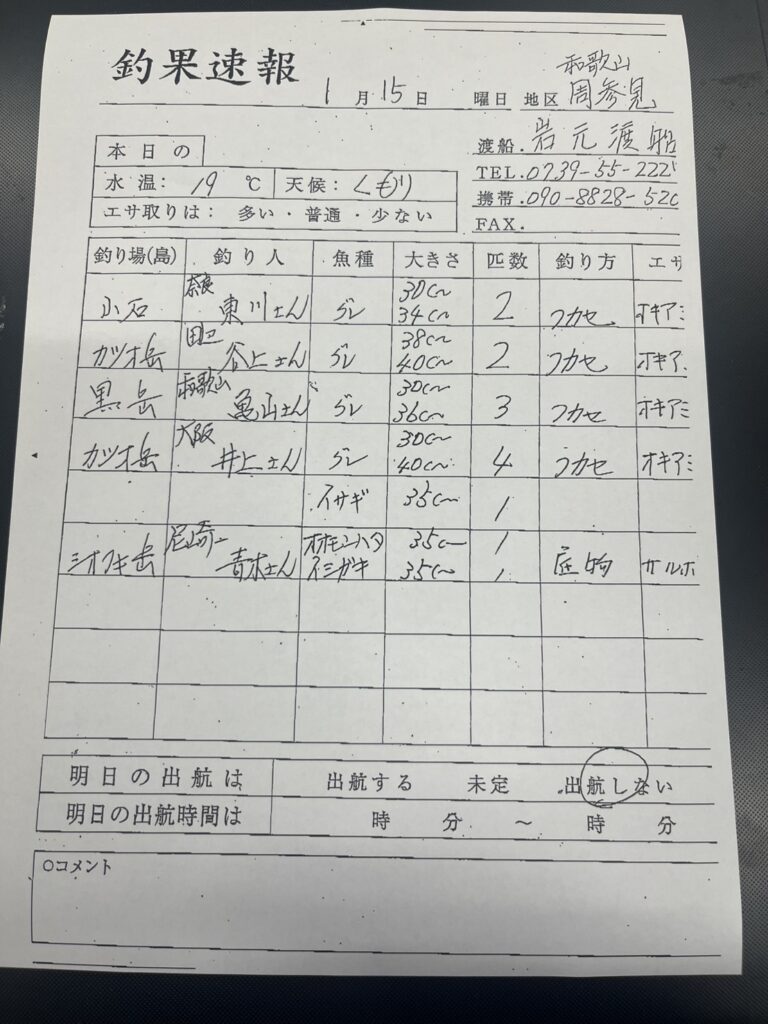 釣果速報
1月15日 曜日 地区 和歌山 周参見
渡船. 岩元渡船
TEL. 0739-55-222
携帯. 090-8828-520
FAX.
本日の
水温: 19 ℃ 天候: くもり
エサ取りは: 多い・普通・少ない
釣り場(島) 釣り人 魚種 大きさ 匹数 釣り方 エサ
小石 奈良 東川さん グレ 30c~34c~ 2 フカセ オキアミ
カツオ岳 田辺 谷上さん グレ 38c~40c~ 2 フカセ オキア
黒岳 和歌山 亀山さん グレ 30c~36c~ 3 フカセ オキアミ
カツオ岳 大阪 井上さん グレ 30c~40c~ 4 フカセ オキアミ
イサギ 35c~ 1
シオフキ岳 尼崎 青木さん オオモンハタ 35c~ 1 底物 サルボ
イシガキ 35c~ 1
明日の出航は 出航する 未定 出航しない
明日の出航時間は 時 分 ~ 時 分
○コメント